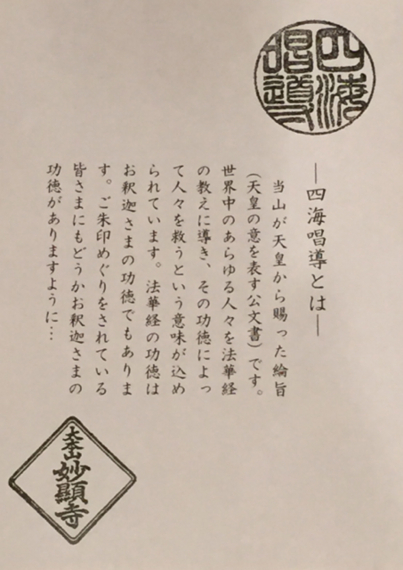 四海唱導
―四海唱導とは―
当山が天皇から賜った綸旨
(天皇の意を表す公文書)です。
世界中のあらゆる人々を法華経
の教えに導き、その功徳によっ
て人々を救うという意味が込め
られています。法華経の功徳は
お釈迦さまの功徳でもありま
す。ご朱印めぐりをされている
皆さまにもどうかお釈迦さまの
功徳がありますように…
大本山
妙顯寺